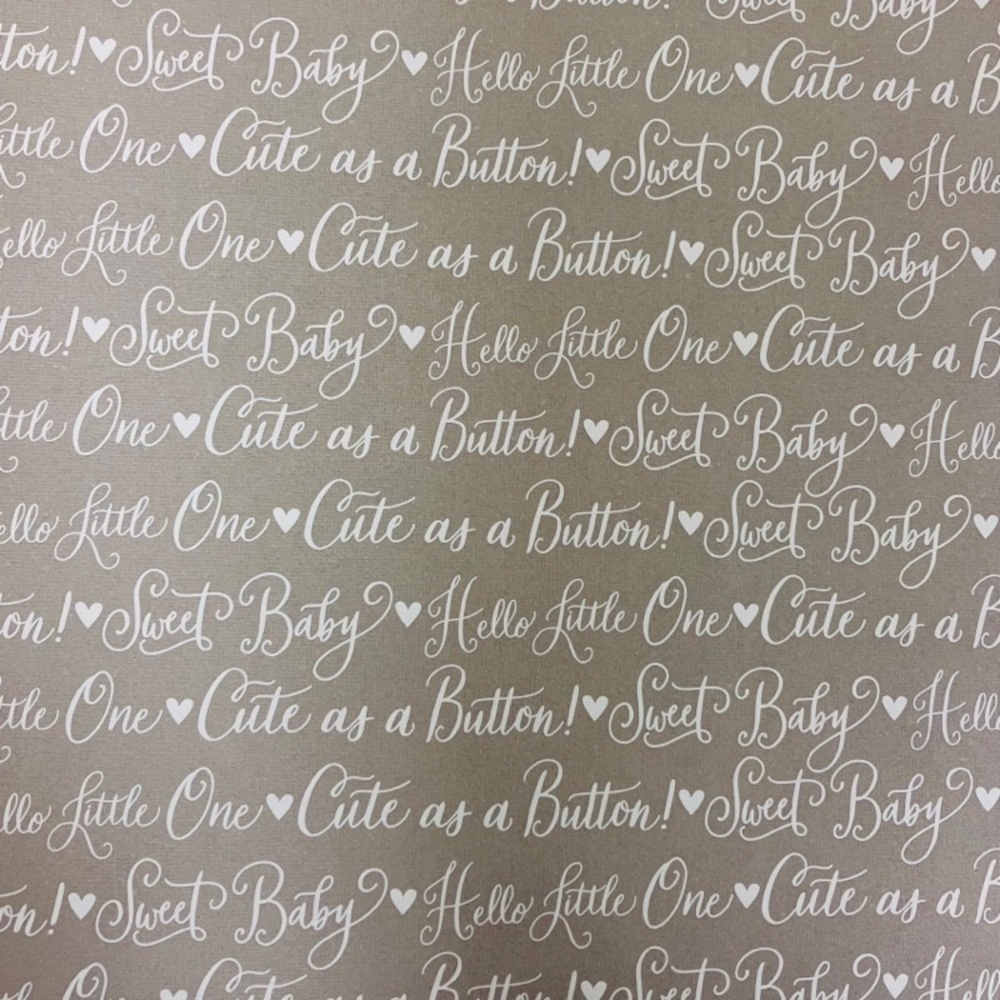 Button! Sweet Baby
ton! ♥ Sweet Baby ♥ Hello Little One ♥ Cute as a B
ittle One ♥ Cute as a Button! ♥ Sweet Baby ♥ Hello
ello Little One ♥ Cute as a Button! ♥ Sweet Baby ♥
ton! ♥ Sweet Baby ♥ Hello Little One ♥ Cute as a B
ittle One ♥ Cute as a Button! ♥ Sweet Baby ♥ Hello
ello Little One ♥ Cute as a Button! ♥ Sweet Baby ♥
on! ♥ Sweet Baby ♥ Hello Little One ♥ Cute as a B
ttle One ♥ Cute as a Button! ♥ Sweet Baby ♥ Hell
llo Little One ♥ Cute as a Button! ♥ Sweet Baby ♥
on! ♥ Sweet Baby ♥ Hello Little One ♥ Cute as a B
One ♥ Cute as a Button! ♥ Sweet Baby ♥ Hell